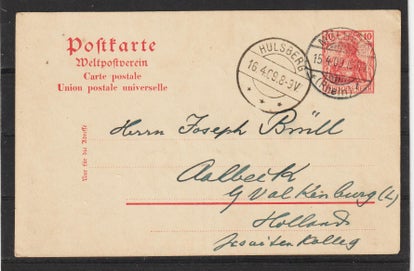 Postkarte
Weltpostverein
Carte postale
Union postale universelle
HULSBERG
16.4.09.8-9V
10
15.4.09
(Rhein)
Nur für die Adresse
Herrn Joseph Brüll
Aalbeck
Valkenburg (L)
Holland
Jesuitenkolleg